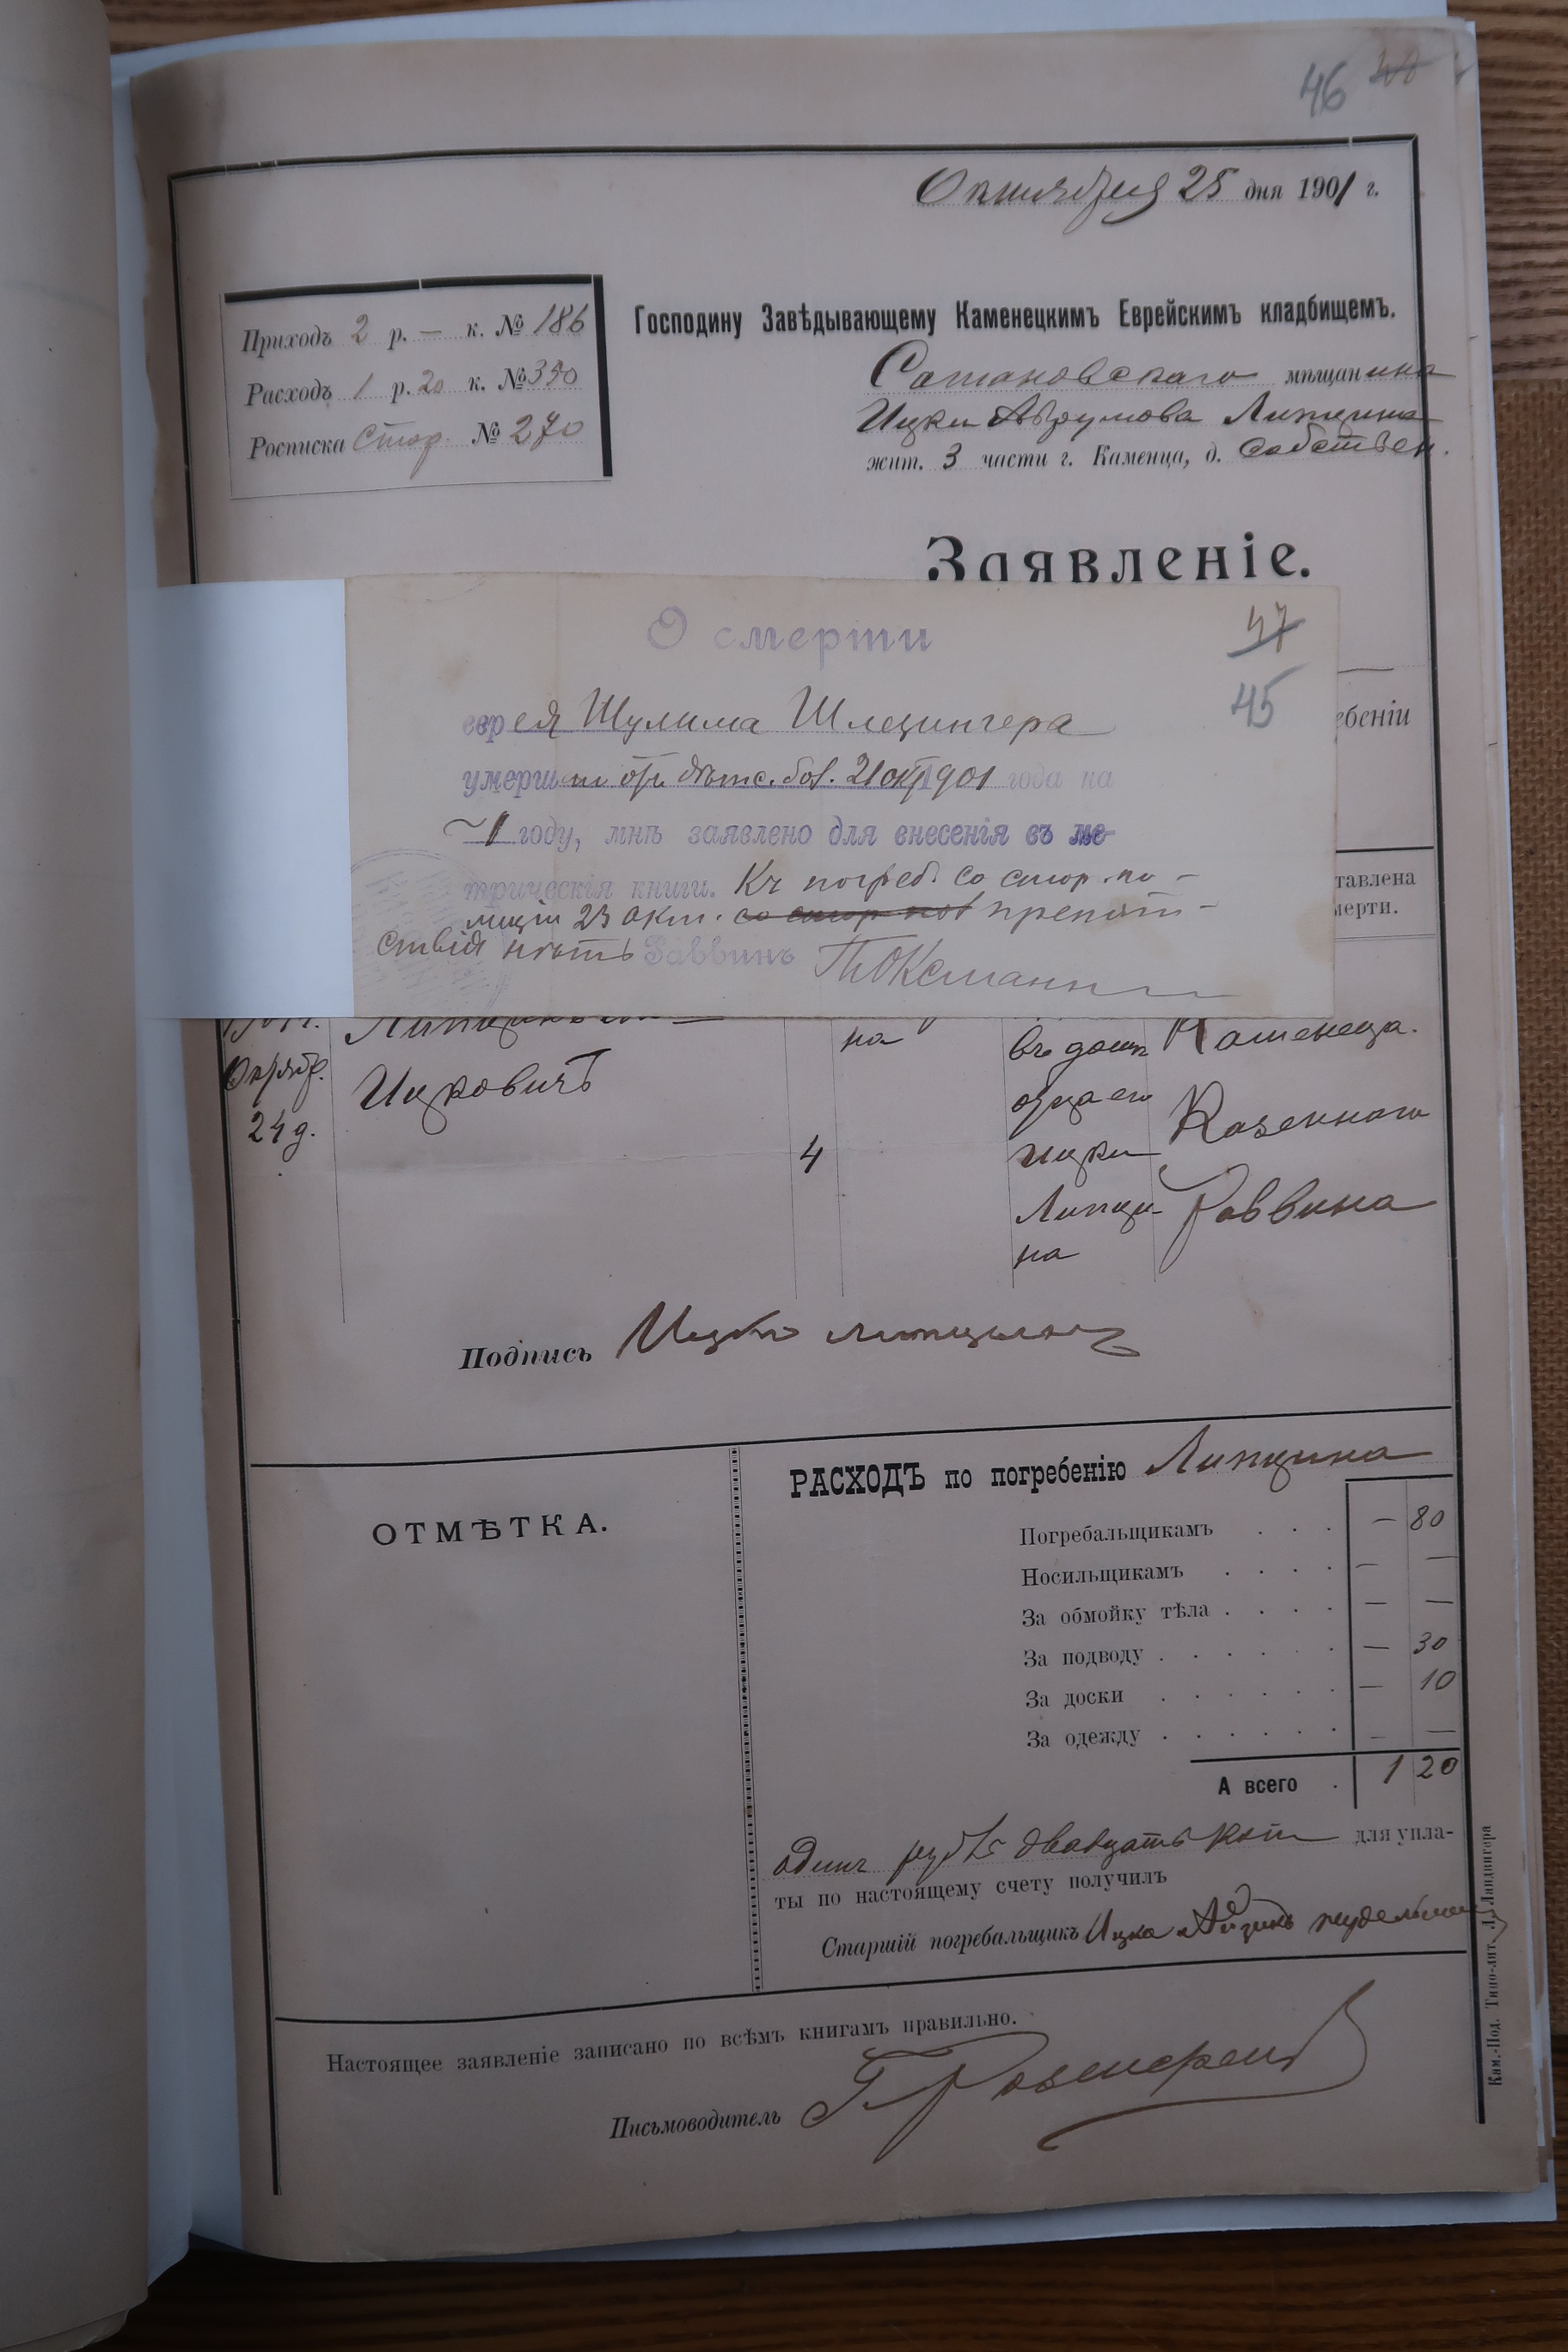 46
Октября 25 дня 1901 г.
Приходъ 2 р. — к. № 186
Расходъ 1 р. 20 к. № 350
Росписка Стор. № 270
Господину Завѣдывающему Каменецкимъ Еврейскимъ кладбищемъ.
Сатановскаго мѣщанина
Ицки Аврумова Липцина
жит. 3 части г. Каменца, д. собствен.
Заявленіе.
О смерти
47
45
еврея Шулима Шлецингера
умерш от дѣтс. бол. 21 окт 1901 года на
1 году, мнѣ заявлено для внесенія въ ме-
трическія книги. Къ погреб. со стор. по-
лиціи 23 окт. со стор пол препят-
ствія нѣтъ Раввинъ
ебеніи
тавлена
мерти.
на
Октяб.
24 д.
Ицковичъ
4
въ домѣ
отца его
Ицки
Липци
на
Каменеца.
Казеннаго
Раввина
Подпись Ицко Липцинъ
ОТМѢТКА.
РАСХОДЪ по погребенію Липцина
Погребальщикамъ . . . — 80
Носильщикамъ . . . . — —
За обмойку тѣла . . . . — —
За подводу . . . . . — 30
За доски . . . . . . — 10
За одежду . . . . . . — —
А всего . 1 20
одинъ рубль двадцать коп для упла-
ты по настоящему счету получилъ
Старшій погребальщикъ Ицка Айзикъ
Настоящее заявленіе записано по всѣмъ книгамъ правильно.
Письмоводитель Г. Розенфельд
Кам.-Под. Типо-лит. Л. Ландвигера